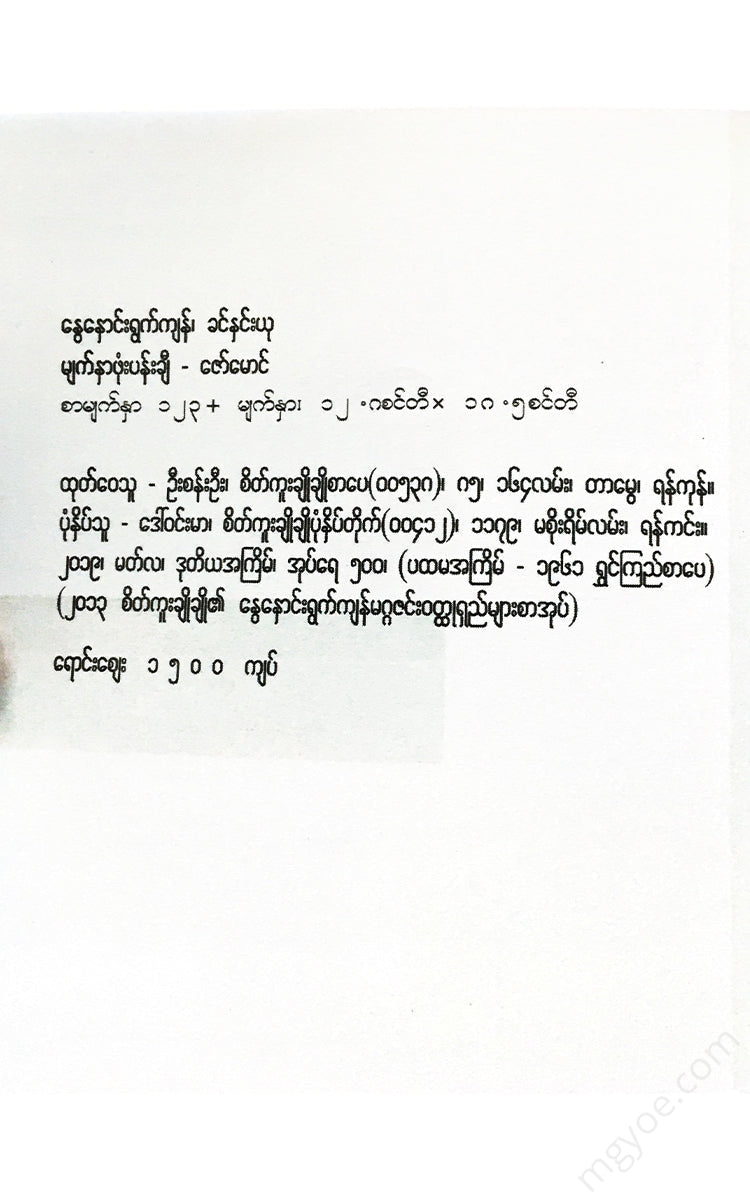 နွေနှောင်းရွက်ကျန်၊ ခင်နှင်းယု
မျက်နှာဖုံးပန်းချီ - ဇော်မောင်
စာမျက်နှာ ၁၂၃ + မျက်နှား ၁၂ ・၈စင်တီ × ၁၈ ・၅စင်တီ
ထုတ်ဝေသူ - ဦးစန်းဦး၊ စိတ်ကူးချိုချိုစာပေ(၀၀၅၃၈)၊ ၈၅၊ ၁၆၄လမ်း၊ တာမွေ၊ ရန်ကုန်။
ပုံနှိပ်သူ - ဒေါ်ဝင်းမာ၊ စိတ်ကူးချိုချိုပုံနှိပ်တိုက်(၀၀၄၁၂)၊ ၁၁၇၉၊ မစိုးရိမ်လမ်း၊ ရန်ကင်း။
၂၀၁၉၊ မတ်လ၊ ဒုတိယအကြိမ်၊ အုပ်ရေ ၅၀၀၊ (ပထမအကြိမ် - ၁၉၆၁ ရွှင်ကြည်စာပေ)
(၂၀၁၃ စိတ်ကူးချိုချို၏ နွေနှောင်းရွက်ကျန်မဂ္ဂဇင်းဝတ္ထုရှည်များစာအုပ်)
ရောင်းဈေး ၁၅၀၀ ကျပ်
mgyoe.com